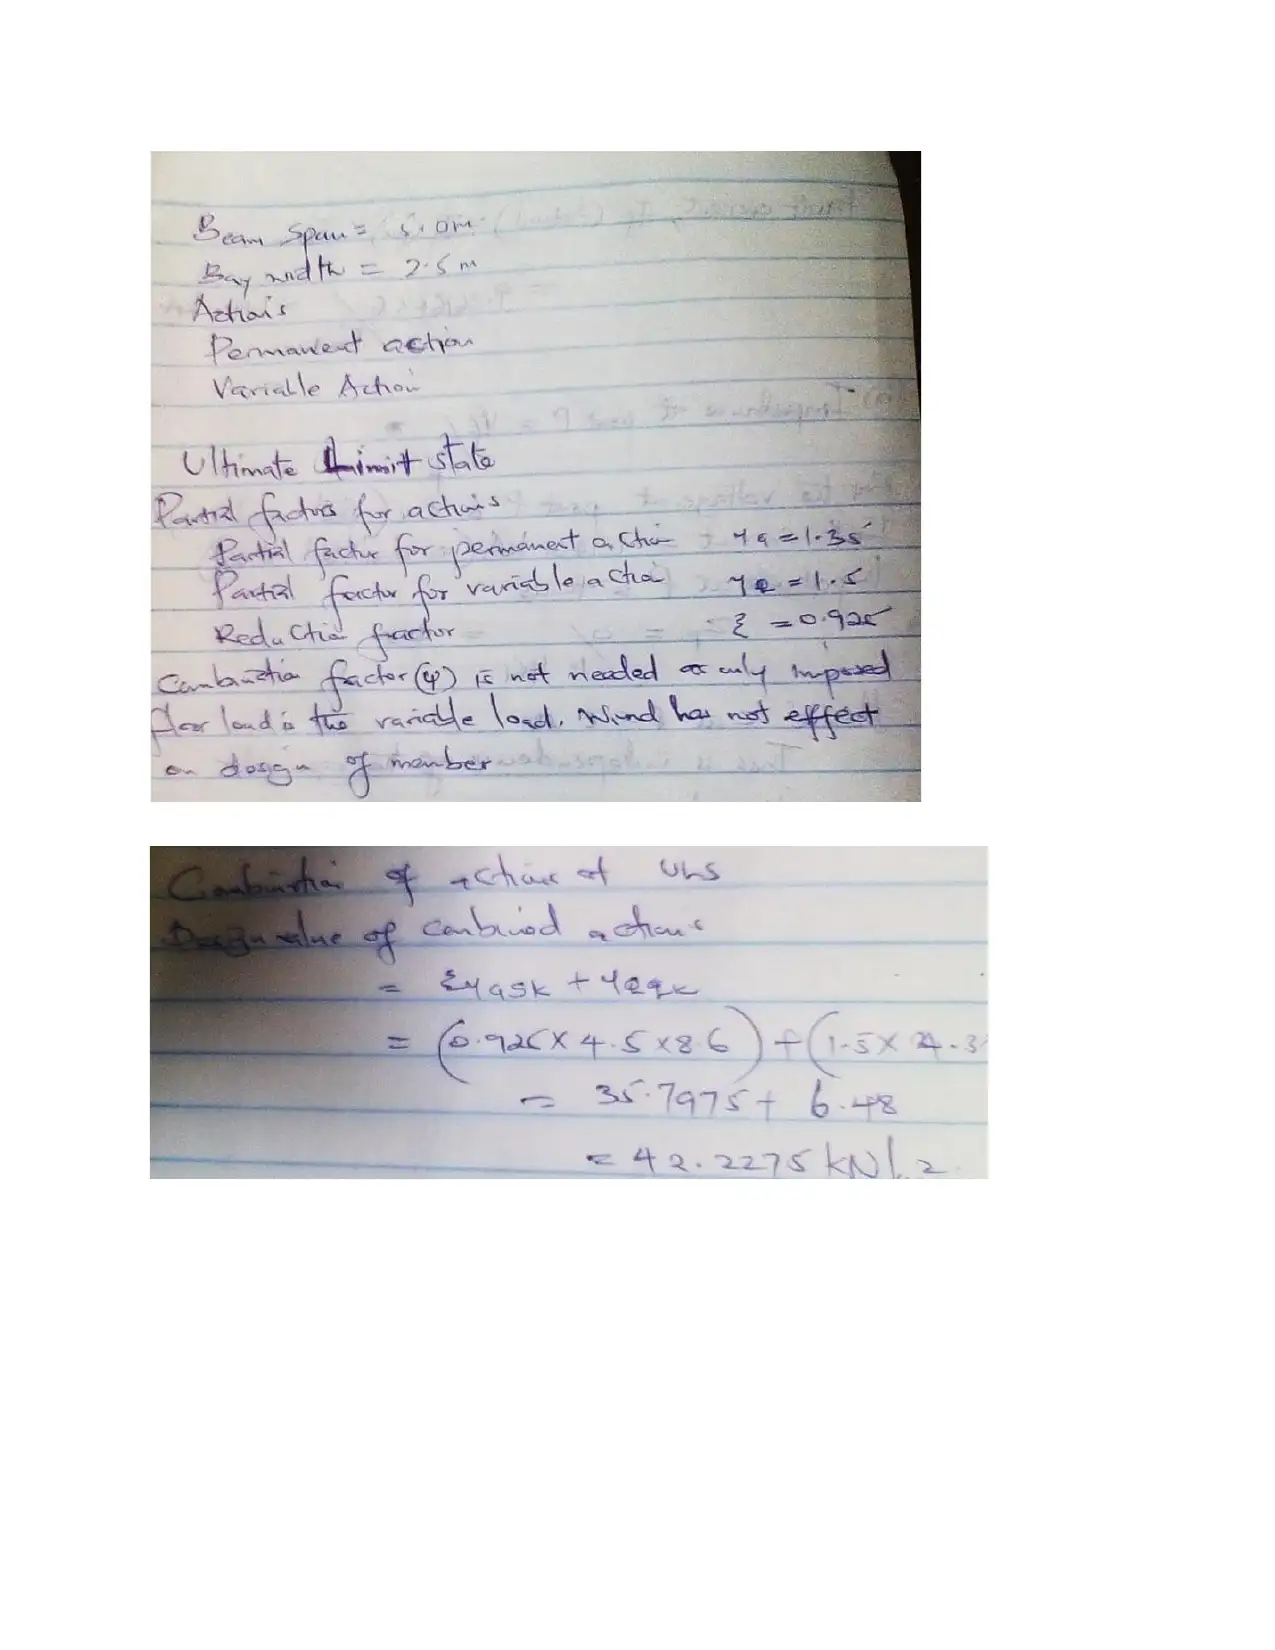 Beam span = 5.0m
Bay width = 2.5 m
Actions
Permanent action
Variable Action
Ultimate Limit state
Partial factors for actions
Partial factor for permanent action γG = 1.35
Partial factor for variable action γQ = 1.5
Reduction factor ξ = 0.925
Combination factor (ψ) is not needed as only imposed
floor load is the variable load. Wind has not effect
on design of member
Combination of actions at ULS
Design value of combined actions
= ξγGgk + γQqk
= (0.925 × 4.5 × 8.6) + (1.5 × 4.3
= 35.7975 + 6.48
= 42.2275 kN/ 2